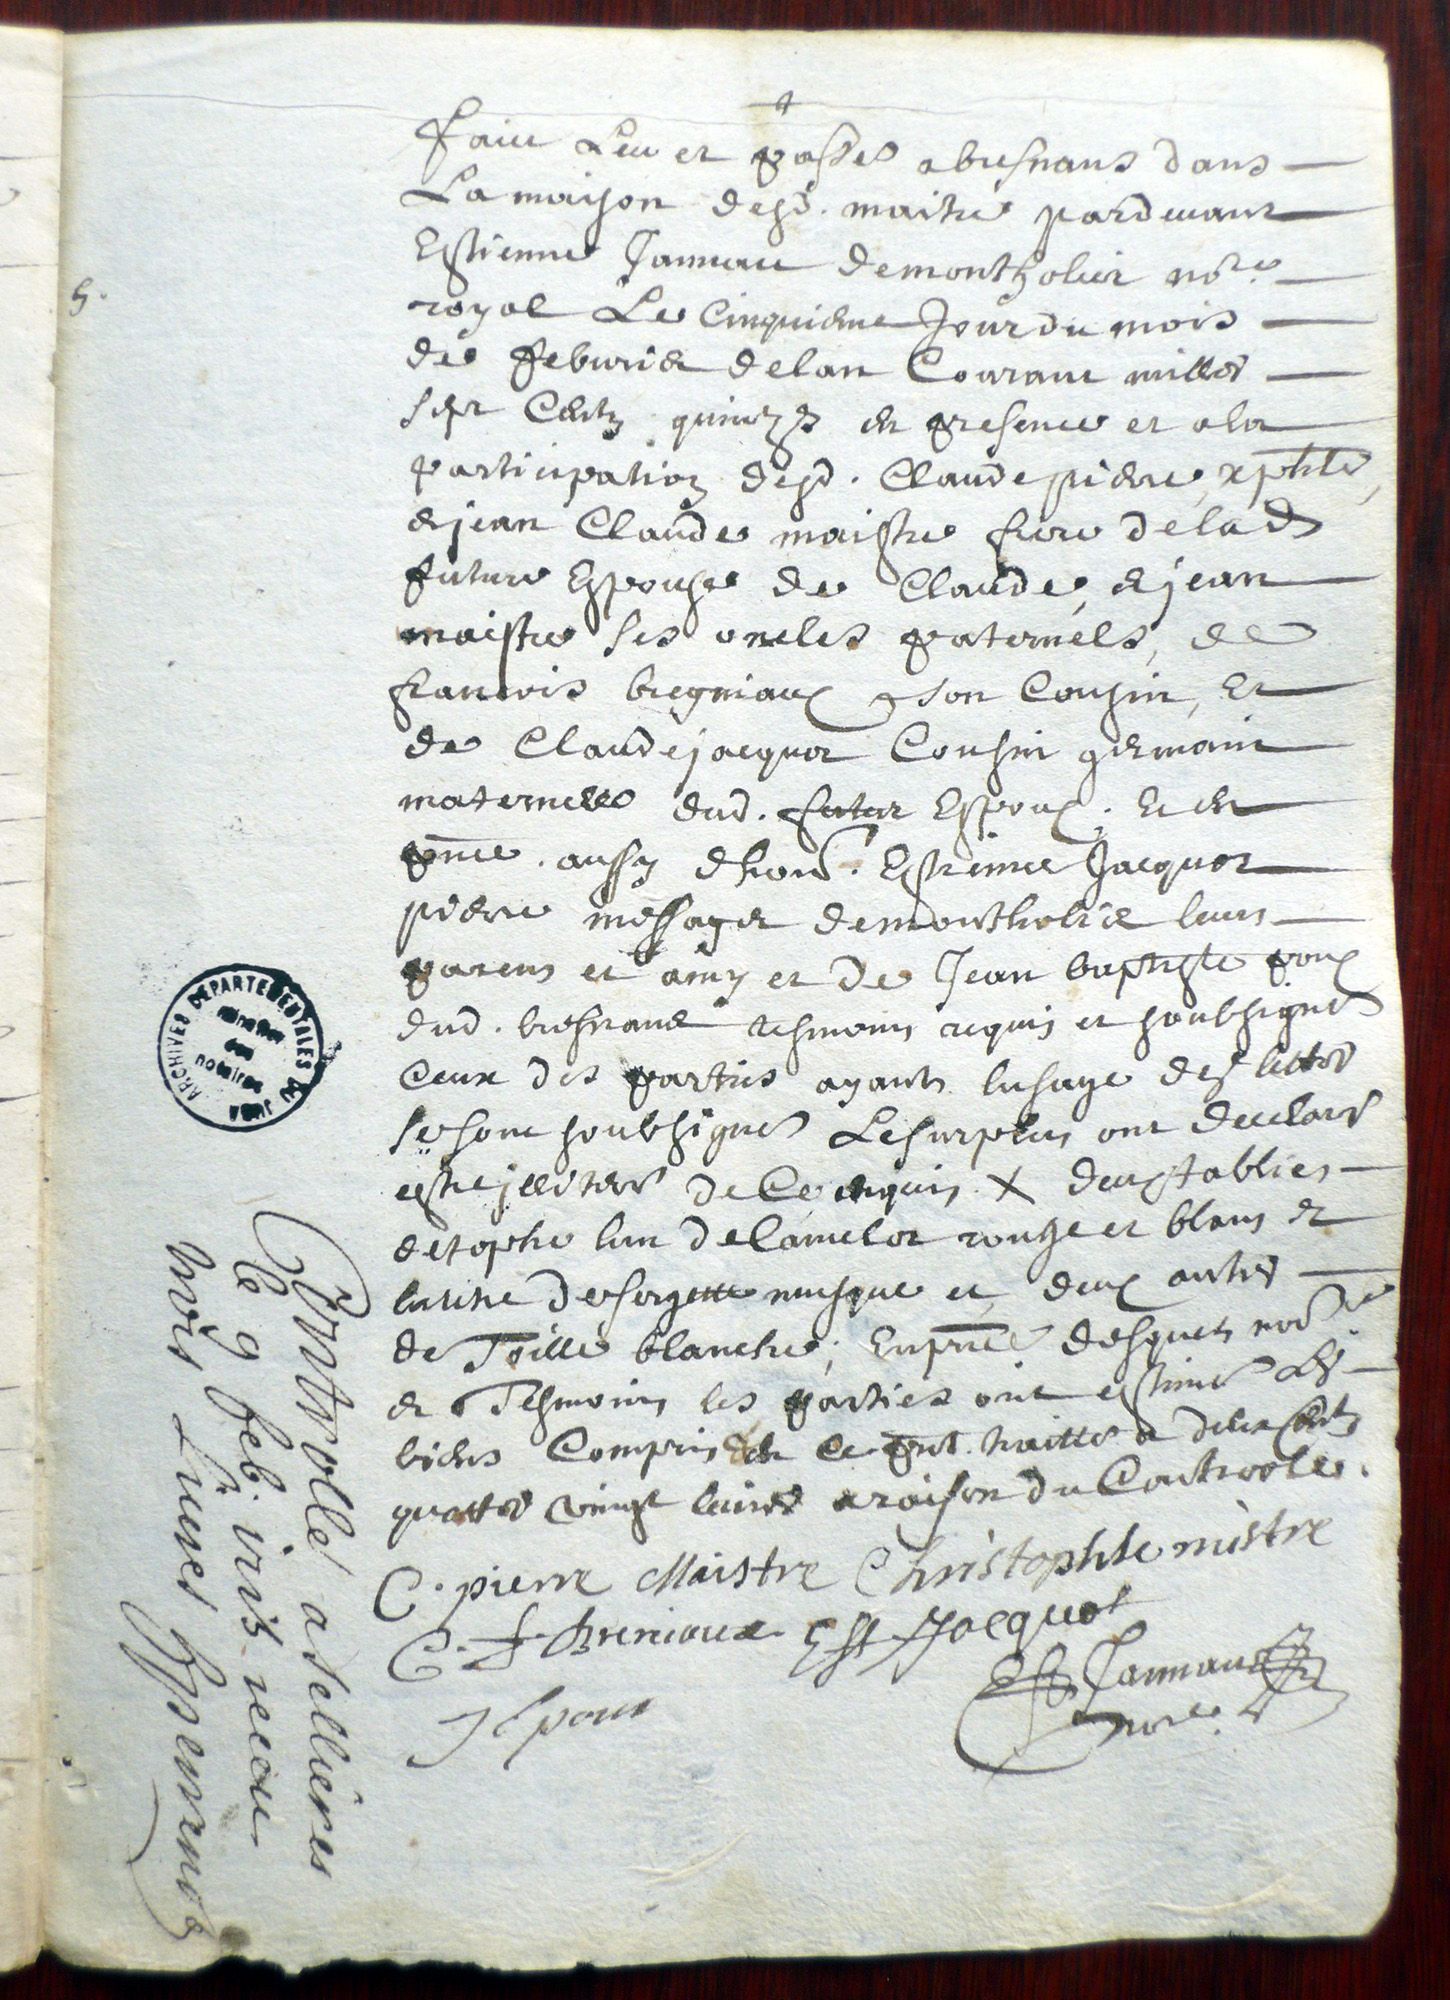 Faict Leu et passé a bresnans dans
La maison desd. maitre pardevant
Estienne Janneau demontholier no.re
5.
royal Le Cinquieme Jour du mois
de febvrier delan Courant mille
sept Centz quinze en presence et ala
participation desd. Claude pierre, xpthle,
et jean Claude maistre frere delad
future Espouse de Claude, et jean
maistre ses oncles paternels, de
francois bregniaux son Cousin, Et
de Claude jacquot Cousin germain
maternelle dud. futur Espoux. Et en
pnce. aussy dhon. Estienne Jacquot
pierre messager demontholier leurs
parens et amy et de Jean baptiste poux
dud. bresnans tesmoins requis et soubsignes
Ceux des parties ayants lusage des lettres
se sont soubsignes Le surplus ont declaré
estre jlliteré de Ce enquis. X deux tabliers
detophe lun de Camelot rouge et blanc et
lautre de sergette musque et deux autres
de Toille blanche; En pnce desquels no.re
et Tesmoins les parties ont estimé Les
biens Compris en ce pnt. traitté a deux Cents
quattre vingt livres a raison du Controole.
C. pierre Maistre Christophle mistre
C. f. breniaux Est Jacquot
J b poux
Est Janneau
nore.
Controllé a sellieres
le 9 feb. 1715 receu
trois Livres
ARCHIVES DEPARTEMENTALES DU JURA
minutes
des
notaires